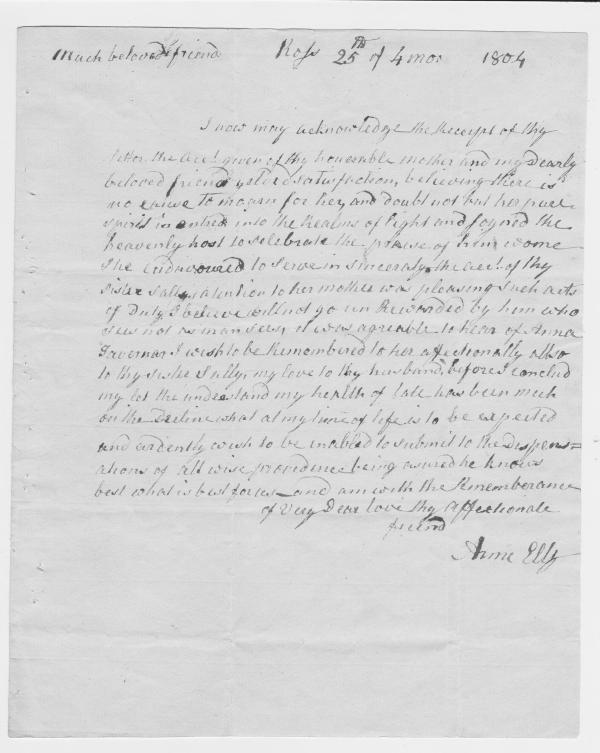 Much beloved friend Ross 25th of 4 mo 1804
I now may acknowledge the Receipt of thy
letter. the acct given of thy honourable mother and my Dearly
beloved friend yeld'd satisfaction, believing there is
no cause to mourn for her, and doubt not but her pure
spirit is entred into the Realms of light and joyned the
heavenly host to selebrate the praise of him whome
she endavoured to serve in sincerety. the acct of thy
sister Sallys atention to her mother was pleasing such acts
of Duty I believe will not go un Rewarded by him who
sees not as man sees, it was agreable to hear of Anna
Governor I wish to be Remembered to her affectionally allso
to thy sister Sally, my love to thy husband, before I conclud
my let the understand my health of late has been much
on the Decline what at my time of life is to be expected
and ardently wish to be inabled to submit to the Dispens=
ations of all wise providence being assured he knows
best what is best for us — and am with the Rememberance
of Very Dear love thy affectionate
friend
Anne Elly